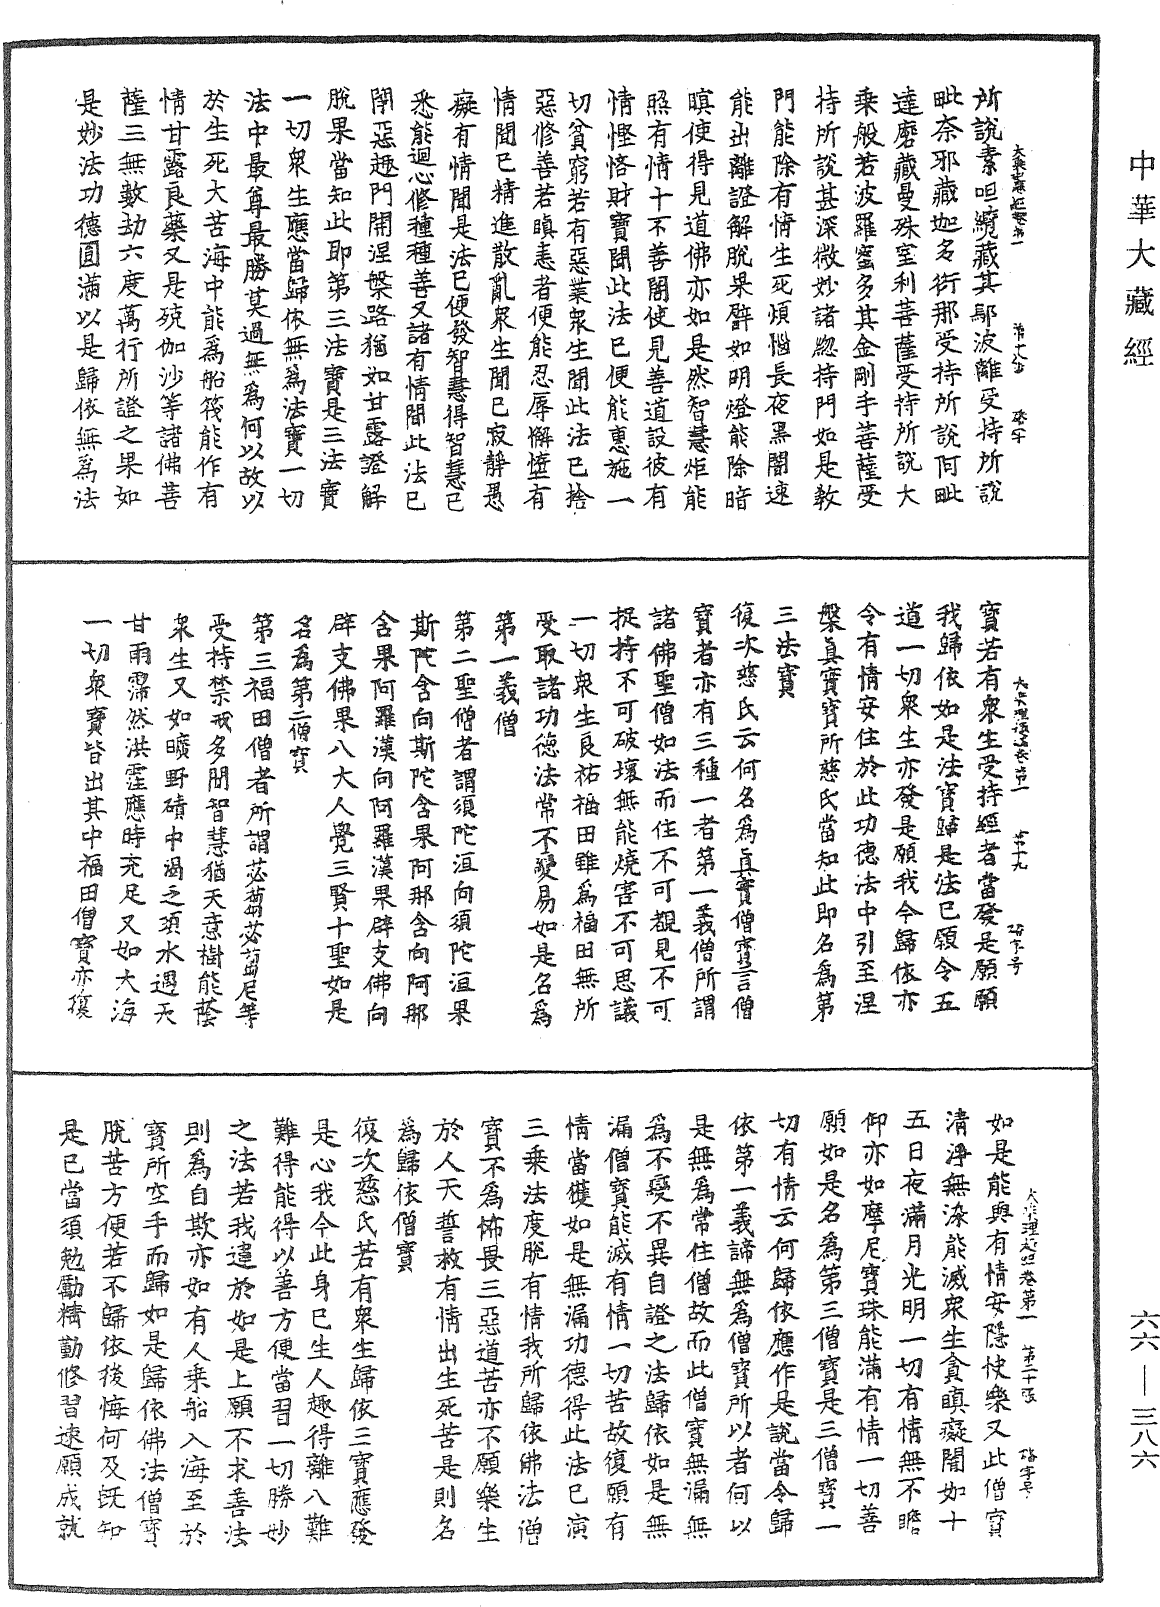 中華大藏經
六六—三八六
所說素呾纜藏其鄔波離受持所說
毗奈邪藏迦多衍那受持所說阿毗
達磨藏曼殊室利菩薩受持所說大
乘般若波羅蜜多其金剛手菩薩受
持所說甚深微妙諸總持門如是教
門能除有情生死煩惱長夜黑闇速
能出離證解脫果譬如明燈能除暗
瞑使得見道佛亦如是然智慧炬能
照有情十不善闇使見善道設彼有
情慳悋財寶聞此法已便能惠施一
切貧窮若有惡業衆生聞此法已捨
惡修善若瞋恚者便能忍辱懈㥿有
情聞已精進散亂衆生聞已寂靜愚
癡有情聞是法已便發智慧得智慧已
悉能迴心修種種善又諸有情聞此法已
閉惡趣門開涅槃路猶如甘露證解
脫果當知此即第三法寶是三法寶
一切衆生應當歸依無爲法寶一切
法中最尊最勝莫過無爲何以故以
於生死大苦海中能爲船筏能作有
情甘露良藥又是殑伽沙等諸佛菩
薩三無數劫六度萬行所證之果如
是妙法功德圓滿以是歸依無爲法
寶若有衆生受持經者當發是願願
我歸依如是法寶歸是法已願令五
道一切衆生亦發是願我今歸依亦
令有情安住於此功德法中引至涅
槃眞實寶所慈氏當知此即名爲第
三法寶
復次慈氏云何名爲眞實僧寶言僧
寶者亦有三種一者第一義僧所謂
諸佛聖僧如法而住不可覩見不可
捉持不可破壞無能燒害不可思議
一切衆生良祐福田雖爲福田無所
受取諸功德法常不變易如是名爲
第一義僧
第二聖僧者謂須陀洹向須陀洹果
斯陀含向斯陀含果阿那含向阿那
含果阿羅漢向阿羅漢果辟支佛向
辟支佛果八大人覺三賢十聖如是
名爲第二僧寶
第三福田僧者所謂苾蒭苾蒭尼等
受持禁戒多聞智慧猶天意樹能蔭
衆生又如曠野磧中渴乏須水遇天
甘雨霈然洪霔應時充足又如大海
一切衆寶皆出其中福田僧寶亦復
大乘理趣經卷第一　第二十張　
如是能與有情安隱快樂又此僧寶
清淨無染能滅衆生貪瞋癡闇如十
五日夜滿月光明一切有情無不瞻
仰亦如摩尼寶珠能滿有情一切善
願如是名爲第三僧寶是三僧寶一
切有情云何歸依應作是說當令歸
依第一義諦無爲僧寶所以者何以
是無爲常住僧故而此僧寶無漏無
爲不變不異自證之法歸依如是無
漏僧寶能滅有情一切苦故復願有
情當獲如是無漏功德得此法已演
三乘法度脫有情我所歸依佛法僧
寶不爲怖畏三惡道苦亦不願樂生
於人天誓救有情出生死苦是則名
爲歸依僧寶
復次慈氏若有衆生歸依三寶應發
是心我今此身已生人趣得離八難
難得能得以善方便當習一切勝妙
之法若我違於如是上願不求善法
則爲自欺亦如有人乘船入海至於
寶所空手而歸如是歸依佛法僧寶
脫苦方便若不歸依後悔何及旣知
是已當須勉勵精勤修習速願成就